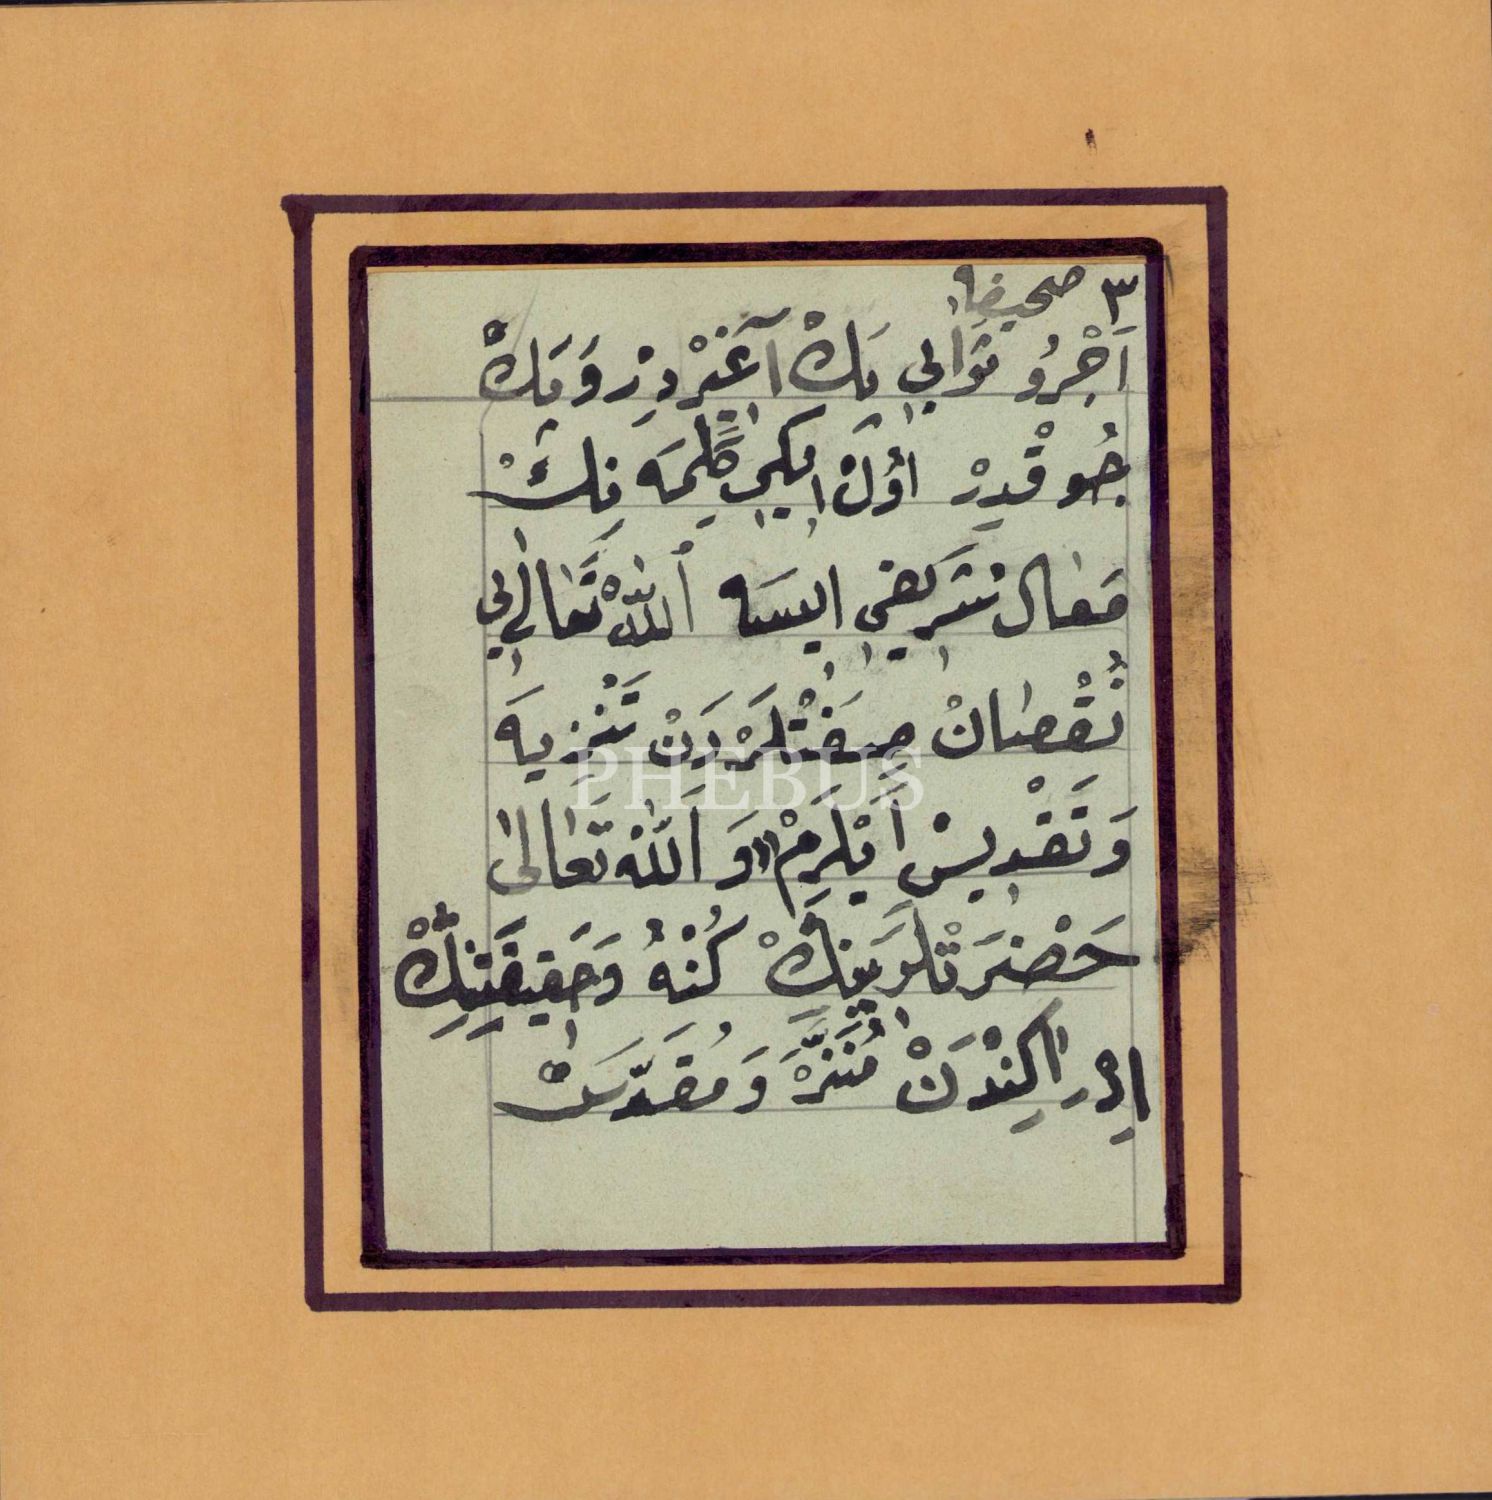 ٣ صحيفه
اَجْرُو ثَوَابِي پَكْ آغِيْرْدِرْ وَپَكْ
چُوقْدِرْ اوُلْ اِيكِي كَلِمَه نِكْ
مَعٰال شَرِيفِي اِيسَه اَللّٰهْ تَعَالٰى يِي
نُقْصَانْ صِفَتْلَرْدَنْ تَنْزِيهَ
وَتَقْدِيسْ اَيْلَرِمْ «وَ اَللّٰهْ تَعَالىٰ
حَضْرَتْلَرِينِكْ كُنْهُ وَحَقِيقَتِنِكْ
اِدْرَاكِنْدَنْ مُنَزَّهْ وَ مُقَدَّسَتْ
PHEBUS